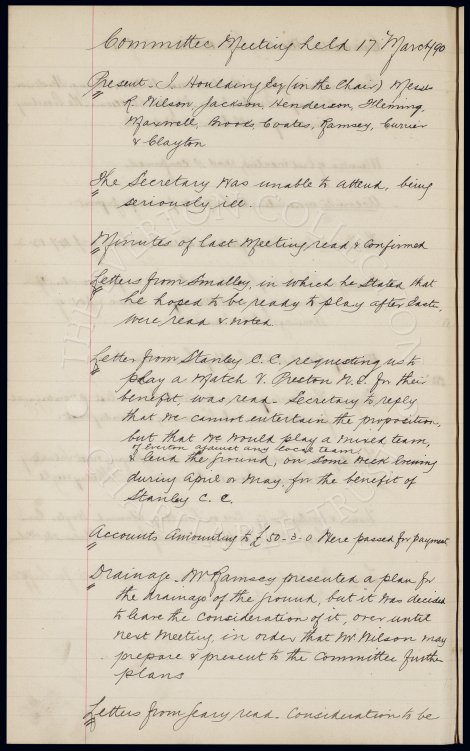 Committee Meeting held 17" March/90
Present. J. Houlding Esq (in the Chair) Mess
R. Wilson, Jackson, Henderson, Fleming,
Maxwell, Brooks, Coates, Ramsey, Currier
& Clayton
The Secretary was unable to attend, being
seriously ill.
Minutes of last Meeting read & confirmed
Letters from Smalley, in which he stated that
he hoped to be ready to play after Easter,
were read & noted.
Letter from Stanley C.C. requesting us to
play a Match V. Preston N.E. for their
benefit, was read. Secretary to reply
that we cannot entertain the proposition,
but that we would play a mixed team,
of Everton against any local team
& lend the ground, on some week evening
during April or May, for the benefit of
Stanley C. C.
Accounts Amounting to £50-3-0 Were passed for payment
Drainage. Mr Ramsey presented a plan for
the drainage of the ground, but it was decided
to leave the Consideration of it, over until
next meeting, in order that Mr. Wilson may
prepare & present to the Committee further
plans
Letters from Geary read. Consideration to be
THE EVERTON COLLECTION